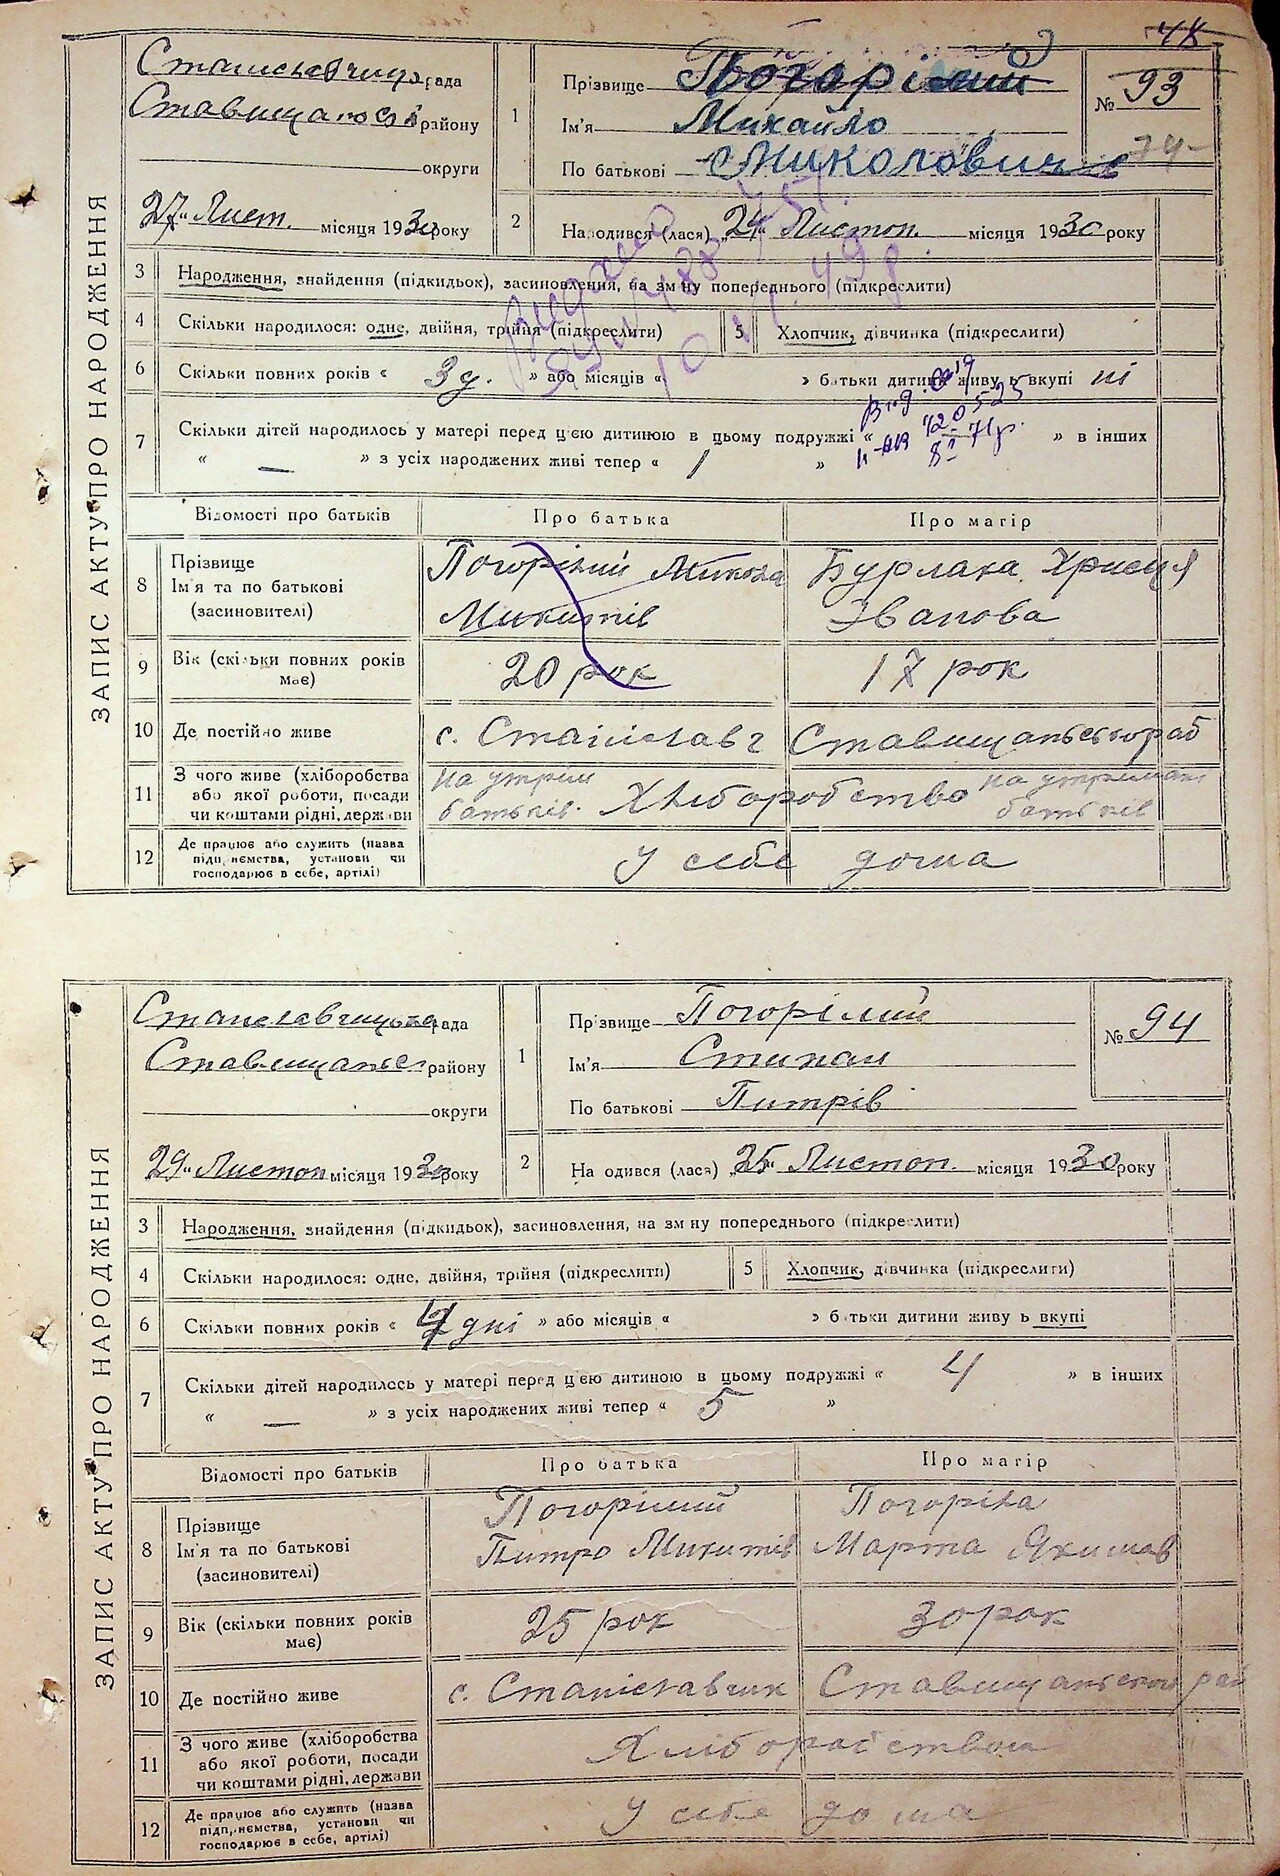 48
ЗАПИС АКТУ ПРО НАРОДЖЕННЯ
Станіславчицька рада
Ставищанськ району
округи
27" Лист. місяця 1930 року
1
Прізвище Погорілий
Ім'я Михайло
По батькові Миколович
№ 93
74
2
Народився (лася) „24" Листоп. місяця 1930 року
3 Народження, знайдення (підкидьок), засиновлення, на зміну попереднього (підкреслити)
4 Скільки народилося: одне, двійня, трійня (підкреслити)
5 Хлопчик, дівчинка (підкреслити)
6 Скільки повних років « 3 д. » або місяців « » батьки дитини живуть вкупі ні
7 Скільки дітей народилось у матері перед цією дитиною в цьому подружжі « » в інших
« — » з усіх народжених живі тепер « 1 »
Відомості про батьків Про батька Про матір
8 Прізвище
Ім'я та по батькові
(засиновителі)
Погорілий Микола
Микитів
Бурлака Христя
Іванова
9 Вік (скільки повних років
має)
20 рок 17 рок
10 Де постійно живе с. Станіславч Ставищанського рай
11 З чого живе (хліборобства
або якої роботи, посади
чи коштами рідні, держави
на утрим
батьків.
Хліборобство
на утриман
батьків
12 Де працює або служить (назва
підприємства, установи чи
господарює в себе, артілі)
У себе дома
ЗАПИС АКТУ ПРО НАРОДЖЕННЯ
Станіславчицька рада
Ставищанськ району
округи
29" Листоп місяця 1930 року
1
Прізвище Погорілий
Ім'я Стипан
По батькові Питрів
№ 94
2
Народився (лася) „25" Листоп. місяця 1930 року
3 Народження, знайдення (підкидьок), засиновлення, на зміну попереднього (підкреслити)
4 Скільки народилося: одне, двійня, трійня (підкреслити)
5 Хлопчик, дівчинка (підкреслити)
6 Скільки повних років « 4 дні » або місяців « » батьки дитини живуть вкупі
7 Скільки дітей народилось у матері перед цією дитиною в цьому подружжі « 4 » в інших
« — » з усіх народжених живі тепер « 5 »
Відомості про батьків Про батька Про матір
8 Прізвище
Ім'я та по батькові
(засиновителі)
Погорілий
Питро Микитів
Погоріла
Марта Якимов
9 Вік (скільки повних років
має)
25 рок 30 рок
10 Де постійно живе с. Станіславчик Ставищанського рай
11 З чого живе (хліборобства
або якої роботи, посади
чи коштами рідні, держави
Хліборобством
12 Де працює або служить (назва
підприємства, установи чи
господарює в себе, артілі)
У себе дома